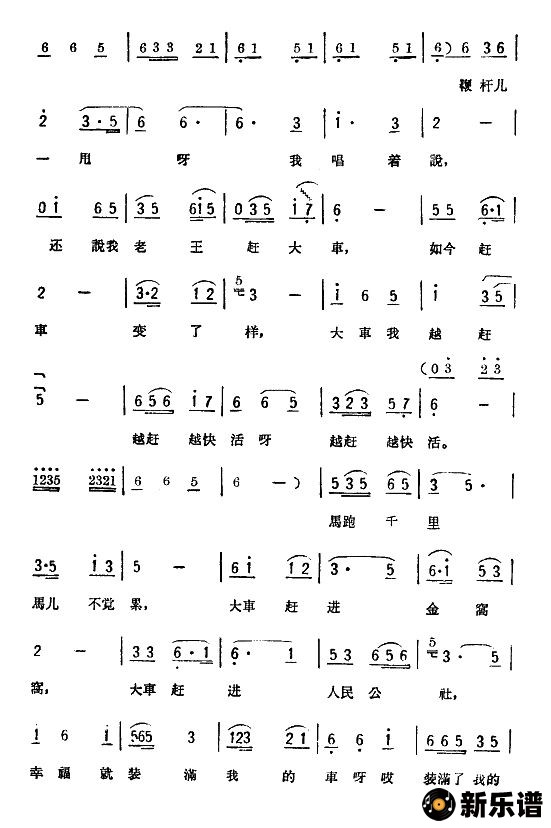 6 6 5 | 633 21 | 61 51 | 61 51 | 6) 6 36 |
鞭 杆儿
2 3·5 | 6 6· | 6· 3 | i· 3 | 2 — |
一 甩 呀 我 唱 着 說,
0i 65 | 35 6i5 | 035 i7 | 6 — | 55 6·1 |
还 說我 老 王 赶 大 車, 如今 赶
2 — | 3·2 12 | 5 3 — | i 6 5 | i 35 |
車 变 了 样, 大 車 我 越 赶
(03 23
5 — | 656 i7 | 6 65 | 323 57 | 6 — |
越赶 越快 活 呀 越赶 越快 活。
1235 2321 | 6 6 5 | 6 — ) | 535 65 | 3 5· |
馬跑 千 里
3·5 i3 | 5 — | 6i i2 | 3· 5 | 6·i 53 |
馬儿 不觉 累, 大車 赶 进 金 窩
2 — | 33 6·1 | 6· 1 | 53 656 | 5 3· 5 |
窩, 大車 赶 进 人民 公 社,
i 6 i | 565 3 | 123 21 | 6 6· | 665 35 |
幸 福 就 装 滿 我 的 車 呀 哎 装滿了 我的
新乐谱